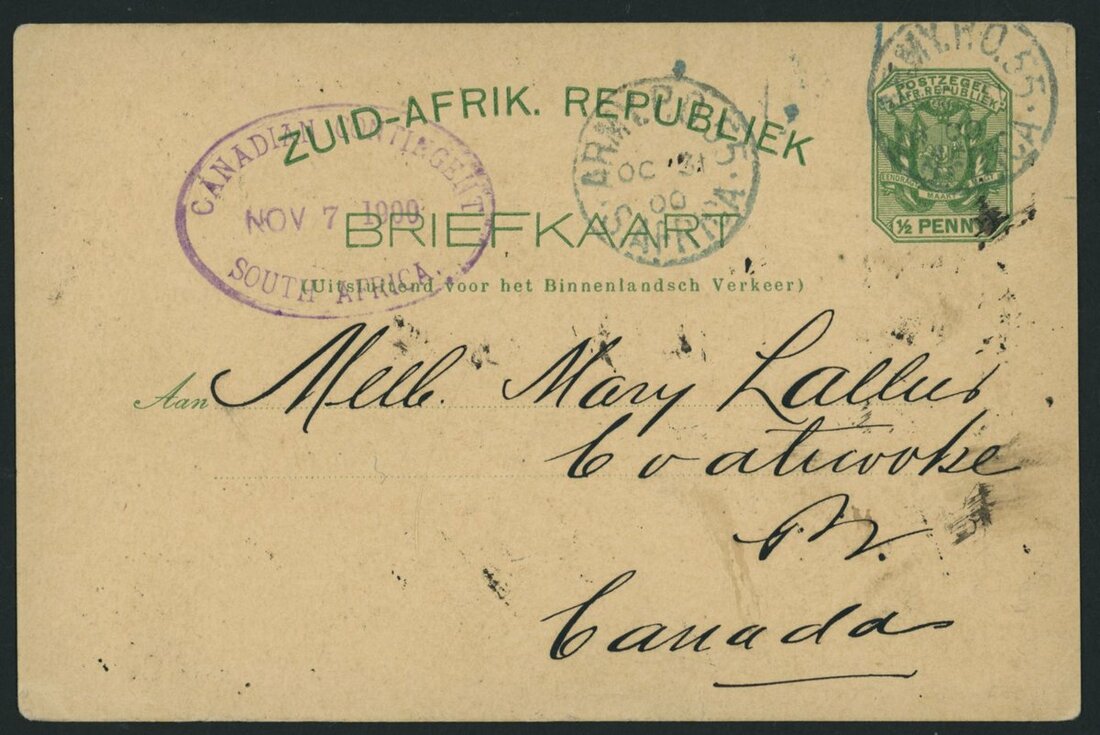 ZUID-AFRIK. REPUBLIEK
BRIEFKAART
(Uitsluitend voor het Binnenlandsch Verkeer)
CANADIAN CONTINGENT
NOV 7 1900
SOUTH AFRICA.
ARMY P.O. 55
OC 31
00
S. AFRICA.
ARMY. P.O. 55.
POSTZEGEL
Z. AFR. REPUBLIEK
EENDRAGT MAAKT MAGT
½ PENNY
Aan Melle. Mary Lallus
Coaticooke
P.Q.
Canada